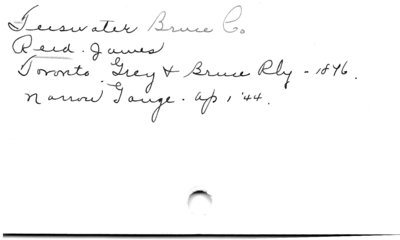 Teeswater Bruce Co.
Reid. James
Toronto Grey & Bruce Rly - 1896.
Narrow Gauge. Ap 1 '44.